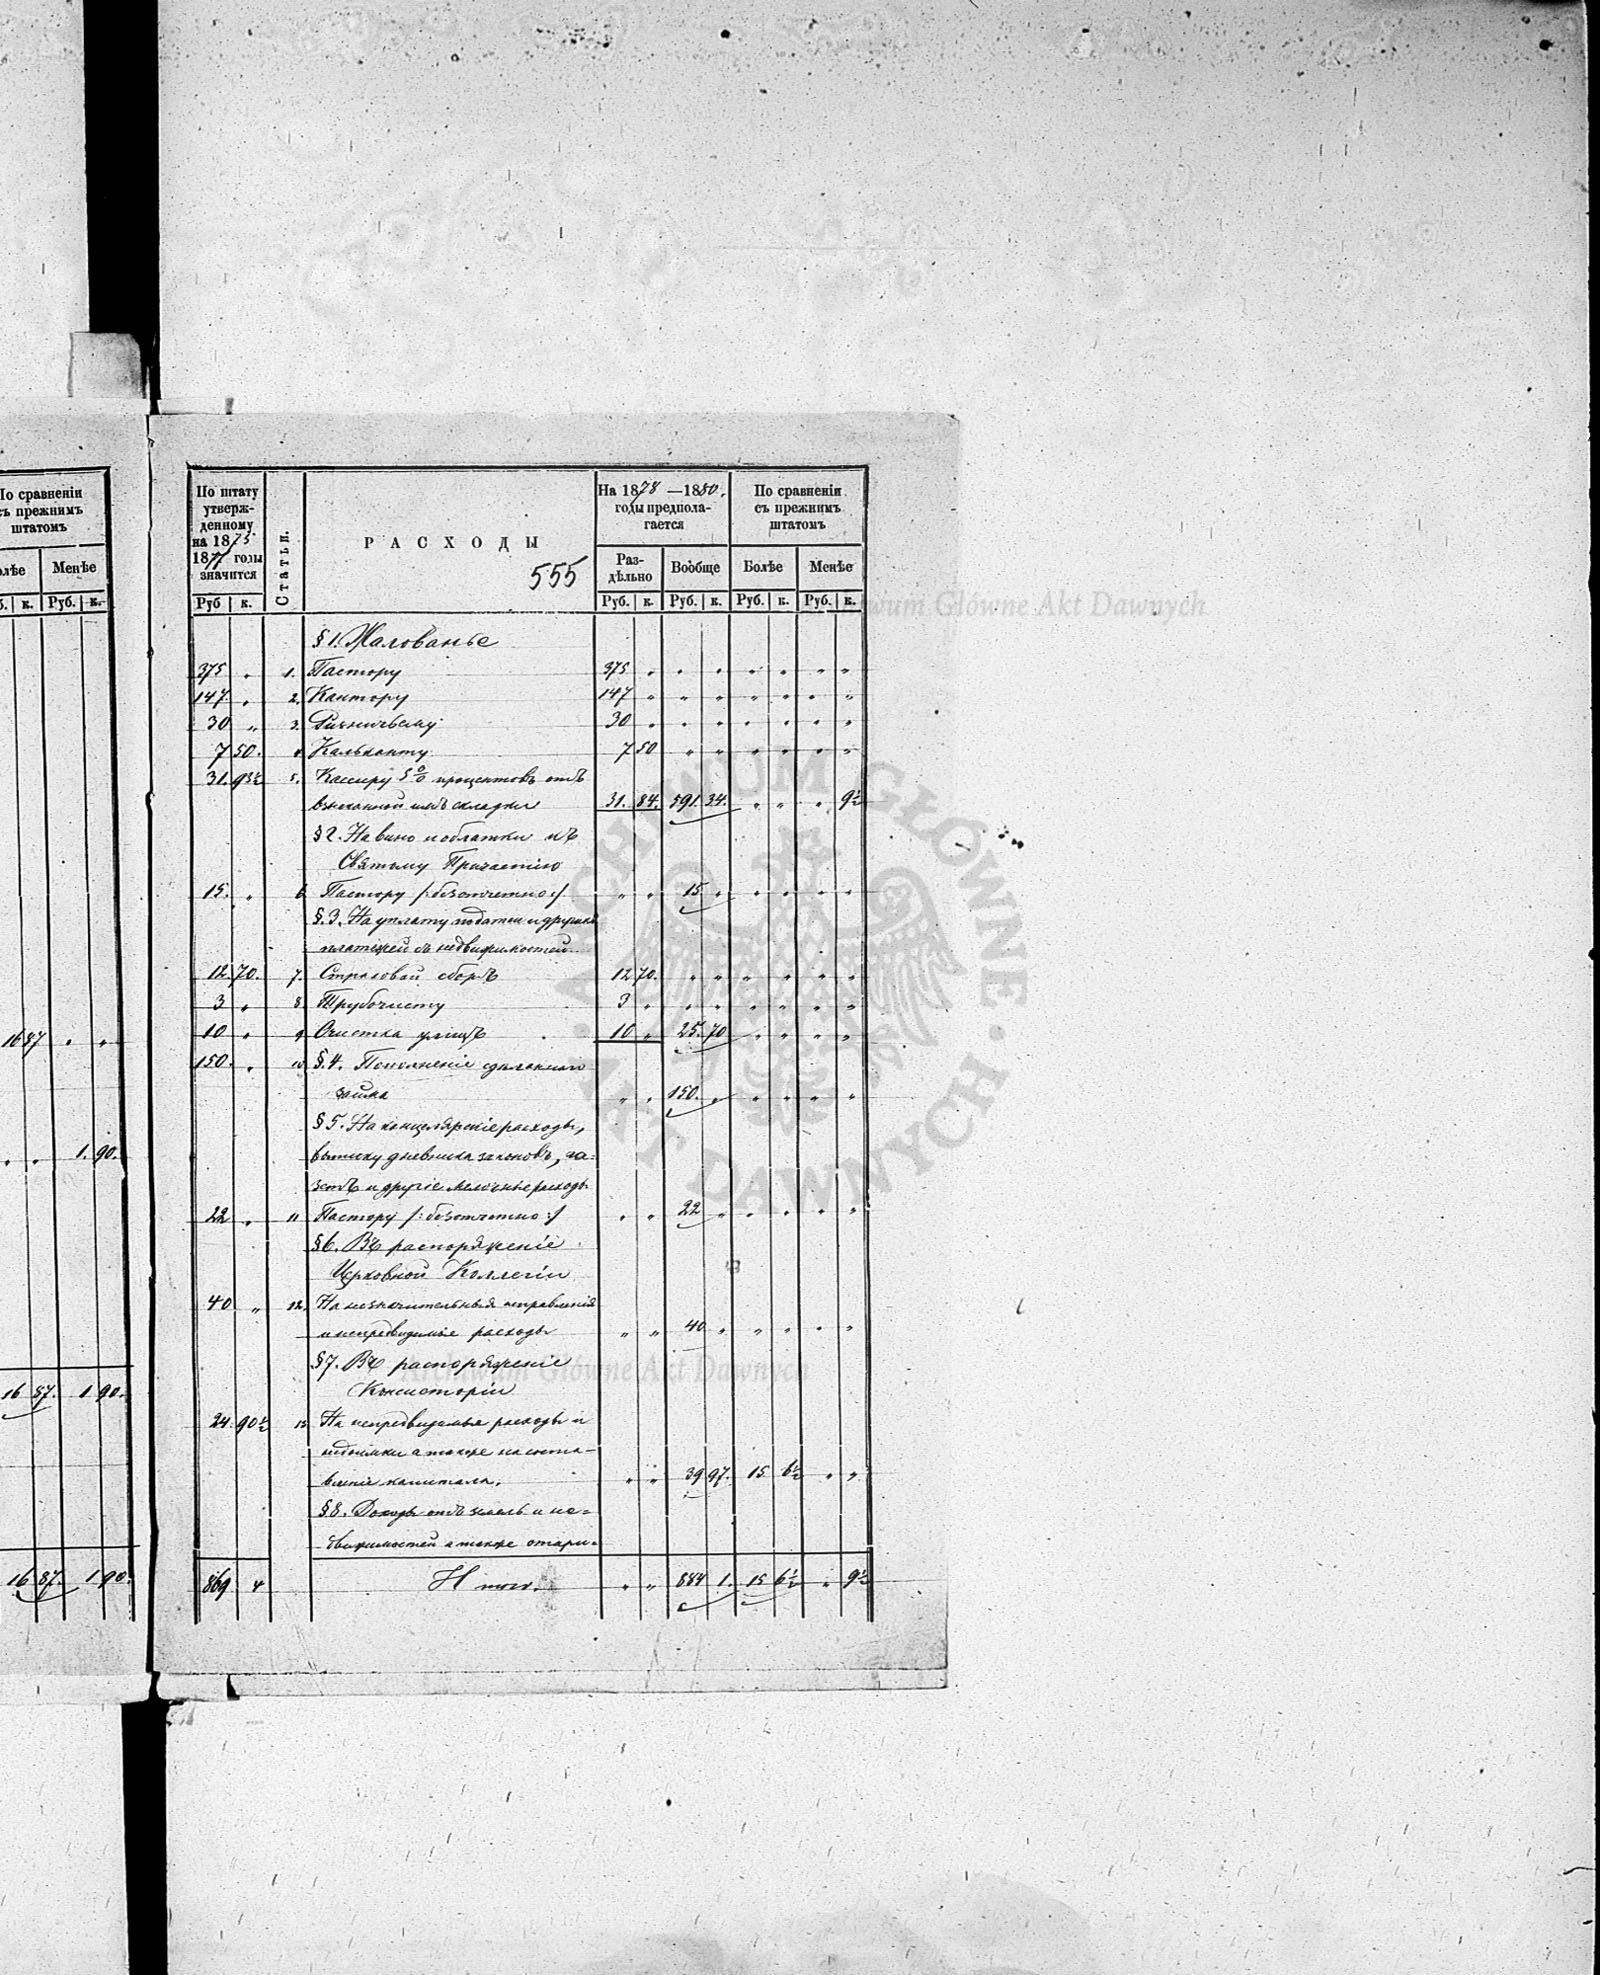 По сравненіи
съ прежнимъ
штатомъ
Менѣе
к. Руб. к.
1687 " "
" " 1. 90.
16 87. 1 90.
16 87. 1 90.
По штату утвержденному на 1875 1877 годы значится
Статьи.
РАСХОДЫ
555
На 1878 —1880. годы предполагается
По сравненіи съ прежнимъ штатомъ
Раздѣльно Вообще Болѣе Менѣе
Руб к. Руб. к. Руб. к. Руб. к. Руб. к.
§ 1. Жалованье
375 " 1. Пастору 375 " " " " " " "
147. " 2. Кантору 147 " " " " " " "
30 " 3. 30 " " " " " " "
7 50. Кальканту 7 50 " " " " " "
31. 93½ 5. Кассиру 5 % процентовъ отъ
взысканной имъ складки 31. 84. 591. 34. " " " 9½
§ 2. На вино и облатки къ
Святому Причастію
15. " 6 Пастору /:безотчетно:/ " " 15. " " " " "
§. 3. На уплату податей и другихъ
платежей съ недвижимостей
12. 70. 7. Страховой сборъ 12 70. " " " " " "
3 " 8. Трубочисту 3 " " " " " " "
10 " 9 Очистка улицъ 10 " 25. 70 " " " "
150. " 10 §. 4. Пополненіе сдѣланнаго
займа " " 150. " " " " "
§ 5. На канцелярскіе расходы,
выписку дневника законовъ, га-
зетъ и другіе мелочные расходы
22 " 11 Пастору /:безотчетно:/ " " 22 " " " " "
§ 6. Въ распоряженіе
Церковной Коллегіи
40 " 12. На незначительныя исправленія
и непредвидимые расходы " " 40 " " " " "
§ 7. Въ распоряженіе
Консисторіи
24. 90½ 13 На непредвидимые расходы и
недоимки а также на соста-
вленіе капитала. " " 39 97. 15 6½ " "
§ 8. Доходы отъ земель и не-
движимостей а также
869 4 Итого. " " 884 1. 15 6½ " 9½
Archiwum Główne Akt Dawnych
ARCHIWUM GŁÓWNE · AKT DAWNYCH ·
Archiwum Główne Akt Dawnych